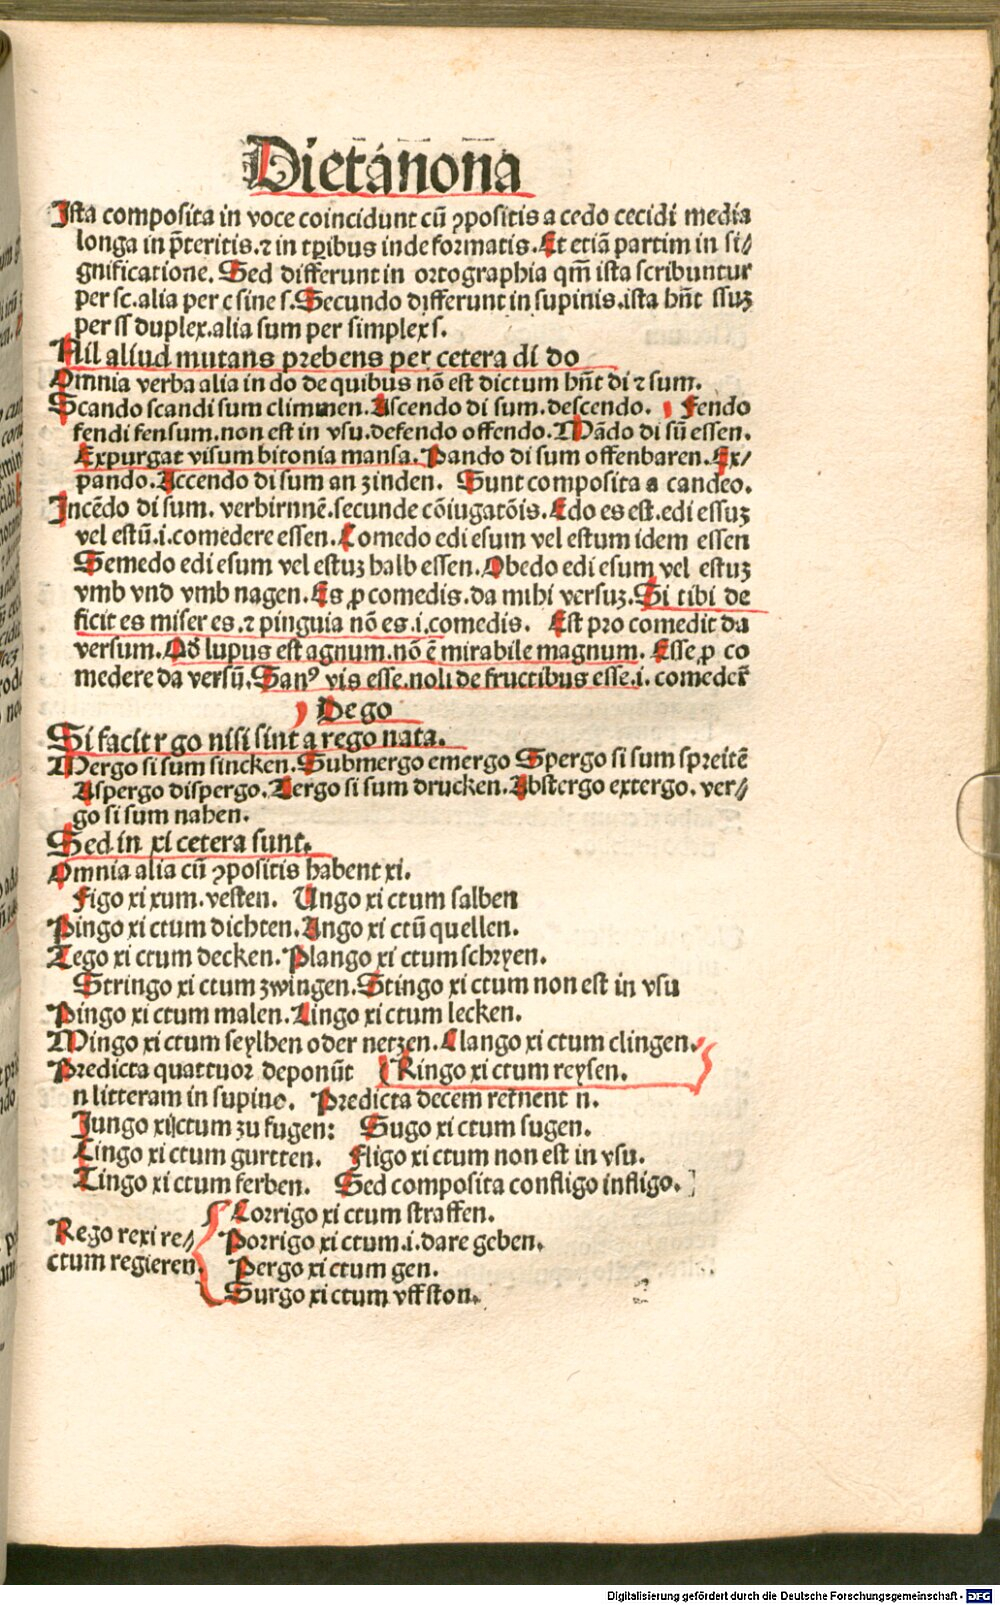 Dietáñon̄a
Ista composita in voce coincidunt cū ꝯpositis a cedo cecidi media
longa in p̄teritis. ⁊ in tꝑibus inde formatis. Et etiā partim in si⸗
gnificatione. Sed differunt in ortographia qm̄ ista scribuntur
per sc. alia per c sine s. Secundo differunt in supinis. ista hn̄t ssuꝫ
per ss duplex. alia sum per simplex s.
Nil aliud mutans prebens per cetera di do
Omnia verba alia in do de quibus nō est dictum hn̄t di ⁊ sum.
Scando scandi sum climmen. Ascendo di sum. descendo. Fendo
fendi fensum. non est in vsu. defendo offendo. Mādo di sū essen.
Expurgat visum bitonia mansa. Pando di sum offenbaren. Ex⸗
pando. Accendo di sum an zinden. Sunt composita a candeo.
Incēdo di sum. verbirnnē. secunde cōiugatōis. Edo es est. edi essuꝫ
vel estū .i. comedere essen. Comedo edi esum vel estum idem essen
Semedo edi esum vel estuꝫ halb essen. Obedo edi esum vel estuꝫ
vmb vnd vmb nagen. Es ꝓ comedis. da mihi versuꝫ. Si tibi de
ficit es miser es. ⁊ pinguia nō es .i. comedis. Est pro comedit da
versum. Qd̄ lupus est agnum. nō ē mirabile magnum. Esse ꝓ co
medere da versū. Sanꝰ vis esse. noli de fructibus esse .i. comeder̄
De go
Si facit r go nisi sint a rego nata.
Mergo si sum sincken. Submergo emergo Spergo si sum spreitē
Aspergo dispergo. Tergo si sum drucken. Abstergo extergo. ver⸗
go si sum nahen.
Sed in xi cetera sunt.
Omnia alia cū ꝯpositis habent xi.
Figo xi xum. vesten. Ungo xi ctum salben
Pingo xi ctum dichten. Ango xi ctū quellen.
Tego xi ctum decken. Plango xi ctum schryen.
Stringo xi ctum zwingen. Stingo xi ctum non est in vsu
Pingo xi ctum malen. Lingo xi ctum lecken.
Mingo xi ctum seylhen oder netzen. Clango xi ctum clingen.
Predicta quattuor deponūt (Ringo xi ctum reysen.
n litteram in supino. Predicta decem retinent n.
Jungo xi ctum zu fugen: Sugo xi ctum sugen.
Cingo xi ctum gurtten. Fligo xi ctum non est in vsu.
Tingo xi ctum ferben. Sed composita confligo infligo.]
Corrigo xi ctum straffen.
Rego rexi re⸗ Porrigo xi ctum .i. dare geben.
ctum regieren. Pergo xi ctum gen.
Surgo xi ctum vffston.
Digitalisierung gefördert durch die Deutsche Forschungsgemeinschaft - DFG